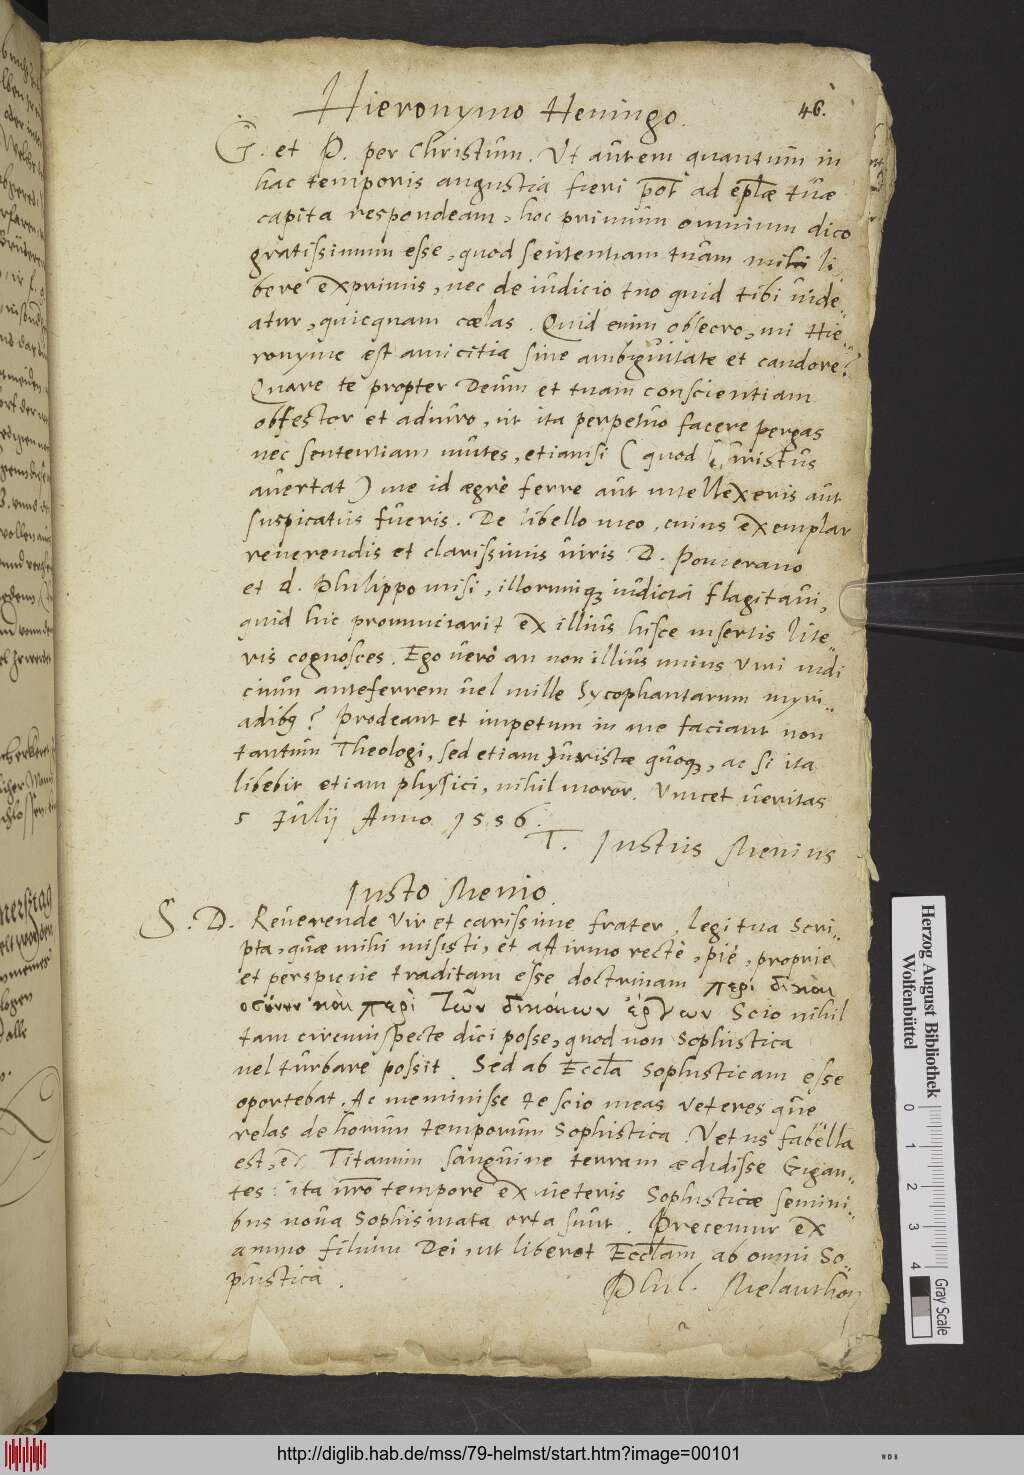 Hieronymo Heningo. 46.
G. et P. per Christum. Ut autem quantum in
hac temporis angustia fieri pot ad eplæ tuæ
capita respondeam, hoc primum omnium dico
gratissimum esse, quod sententiam tuam mihi li
bere exprimis, nec de iudicio tuo quid tibi uide„
atur, quicquam cælas. Quid enim obsecro, mi Hie„
ronyme est amicitia sine ambiguitate et candore?
Quare te propter Deum et tuam conscientiam
obtestor et adiuro, ut ita perpetuo facere pergas
nec sententiam mutes, etiamsi (quod Christus
auertat) me id ægrè ferre aut intellexeris aut
suspicatus fueris. De libello meo, cuius exemplar
reuerendis et clarissimis uiris D. Pomerano
et d. Philippo misi, illorumq; iudicia flagitaui,
quid hic pronunciarit ex illius hisce insertis lite„
ris cognosces. Ego uerò an non illius unius Viri iudi
cium anteferrem uel mille Sycophantarum myri„
adibq? Prodeant et impetum in me faciant non
tantum Theologi, sed etiam Juristæ quoq;, ac si ita
libebit etiam physici, nihil moror. Vincet ueritas
5 Julij Anno 1556.
T. Justus Menius
Justo Menio
S. D. Reuerende Vir et carissime frater, legi tua Scri„
pta, quæ mihi misisti, et affirmo rectè, piè, propriè
et perspicuè traditam esse doctrinam περὶ δικαι
οσύνης καὶ περὶ τῶν δικαίων ἔργων Scio nihil
tam circumspecte dici posse, quod non Sophistica
uel turbare possit. Sed ab Eccla Sophisticam esse
oportebat. Ac meminisse te scio meas veteres que
relas de horum temporum Sophistica. Vetus fabella
est, ex Titanum sanguine terram ædidisse Gigan„
tes: ita nro tempore ex ueteris Sophisticæ semini„
bus noua Sophismata orta sunt. Precemur ex
animo filium Dei, ut liberet Ecclam ab omni So„
phistica.
Phil. Melanthon
Herzog August Bibliothek
Wolfenbüttel
0 1 2 3 4
Gray Scale
http://diglib.hab.de/mss/79-helmst/start.htm?image=00101